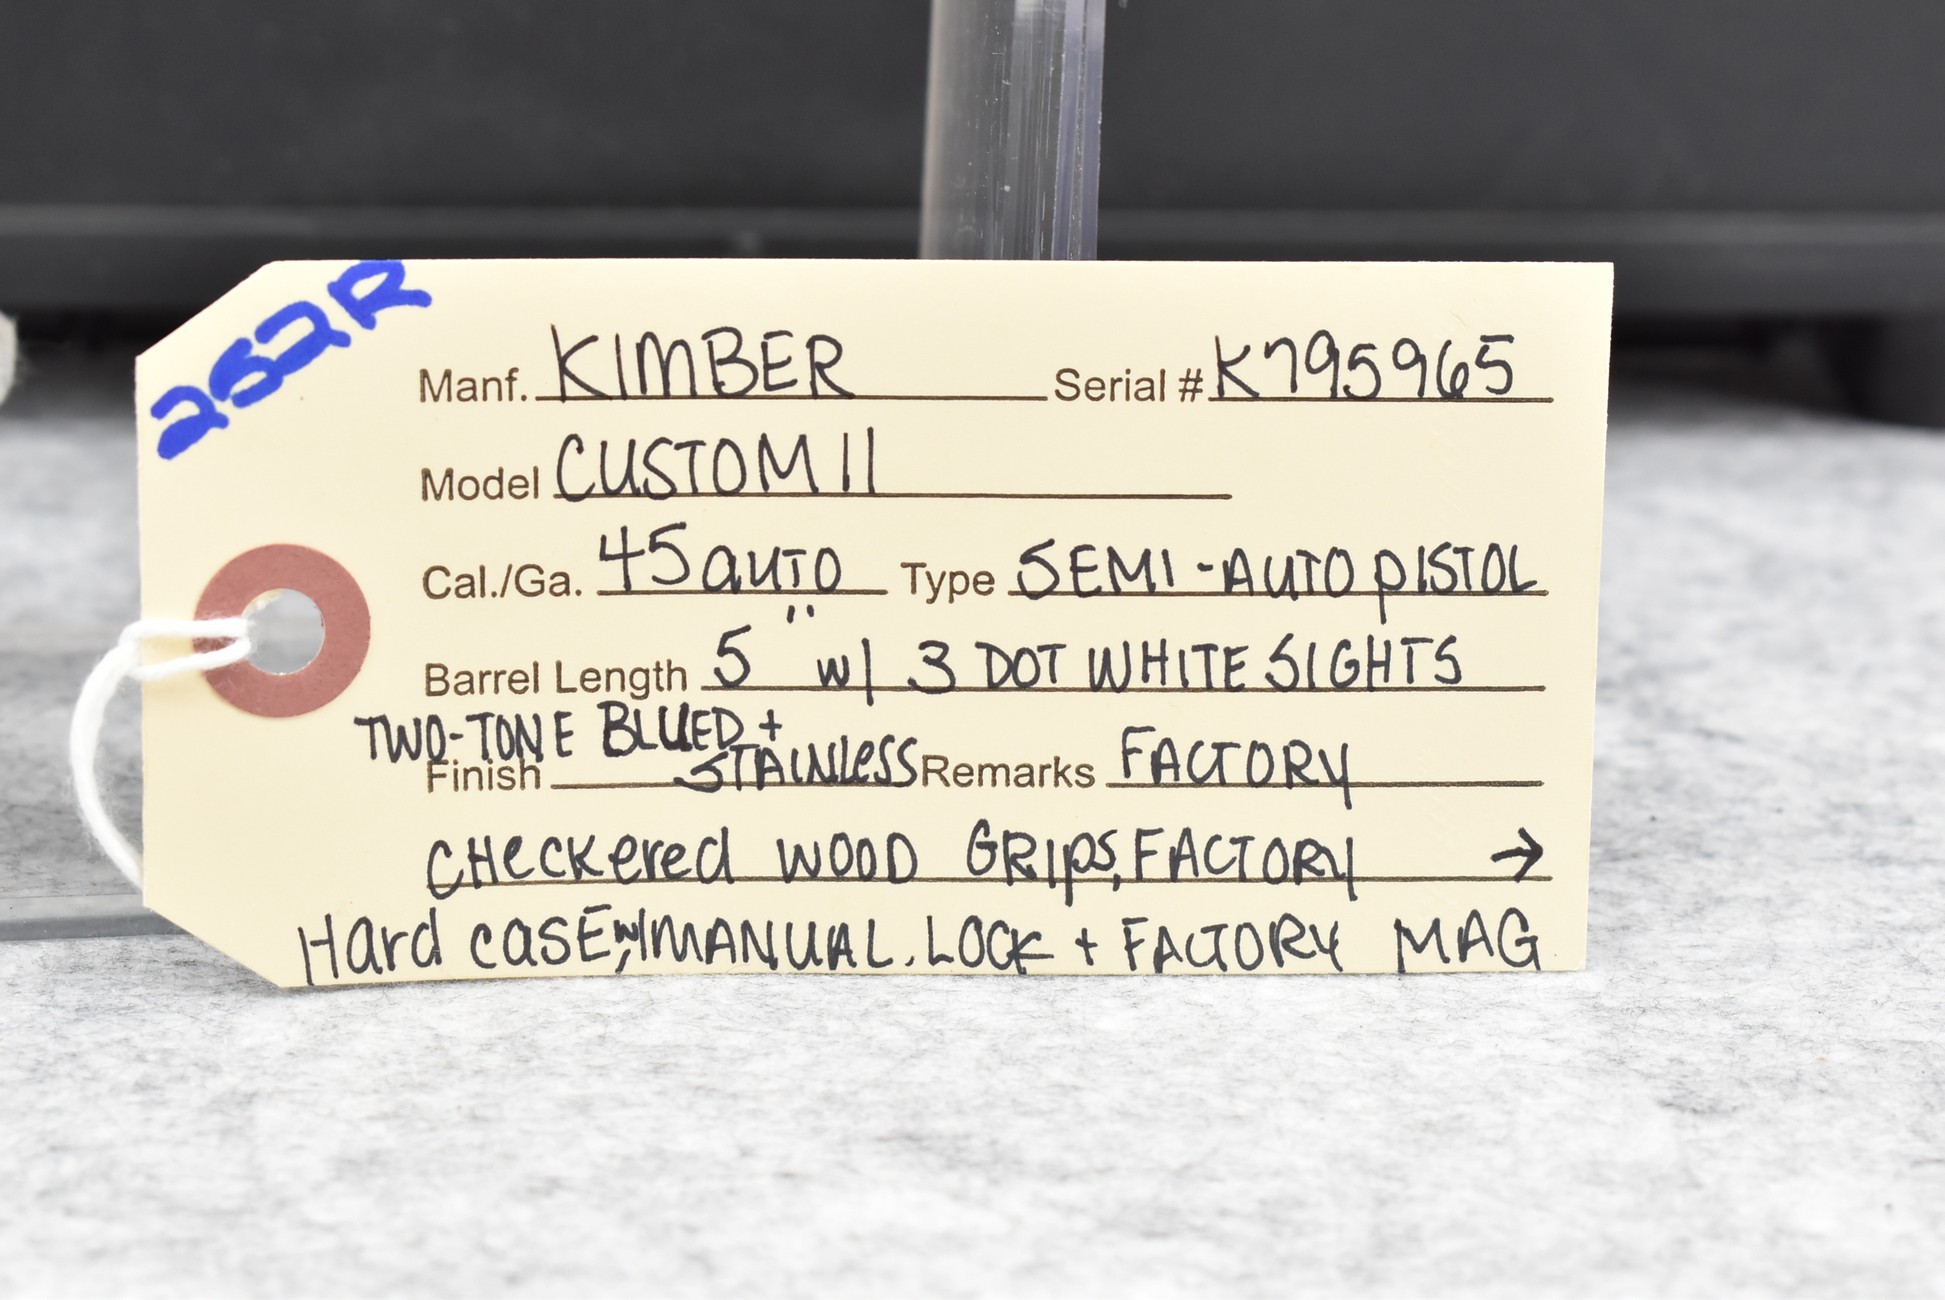 252R
Manf. KIMBER Serial # K795965
Model CUSTOM II
Cal./Ga. 45 auto Type SEMI-AUTO PISTOL
Barrel Length 5" w/ 3 DOT WHITE SIGHTS
TWO-TONE BLUED +
Finish STAINLESS Remarks FACTORY
CHeckered WOOD GRIPS, FACTORY →
Hard casE, w/MANUAL. LOCK + FACTORY MAG